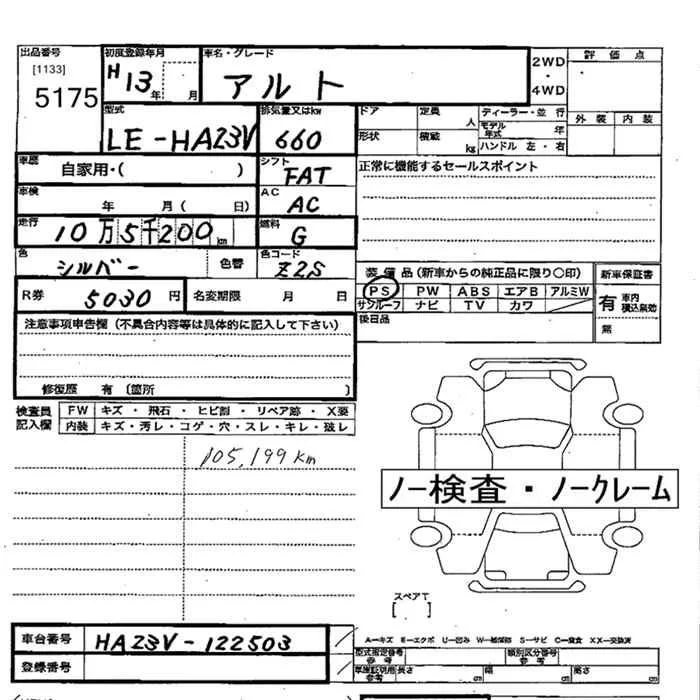 出品番号 初度登録年月 車名・グレード 2WD ・ 4WD 評価点
[1133] H13年 月 アルト
5175
型式 排気量又はkw ドア 定員 人 ディーラー・並行 外装 内装
LE-HA23V 660 形状 積載 kg モデル年式 年
ハンドル 左・右
車歴 自家用・( ) シフト FAT 正常に機能するセールスポイント
車検 年 月( 日) AC AC
走行 10万5千200km 燃料 G
色 シルバー 色替 色コード Z2S 装備品(新車からの純正品に限り○印) 新車保証書
R券 5030円 名変期限 月 日 PS PW ABS エアB アルミW 有 車内積込無効
サンルーフ ナビ TV カワ 無
注意事項申告欄(不具合内容等は具体的に記入して下さい) 後日品
修復歴 有 〔箇所 〕
検査員記入欄 FW キズ・飛石・ヒビ割・リペア跡・X要
内装 キズ・汚レ・コゲ・穴・スレ・キレ・破レ
105,199km
ノー検査・ノークレーム
スペアT
[ ]
車台番号 HA23V-122503 A—キズ E—エクボ U—凹み S—サビ C—腐食
登録番号 型式指定番号 参考 類別区分番号 参考
参考 長さ 幅 高さ